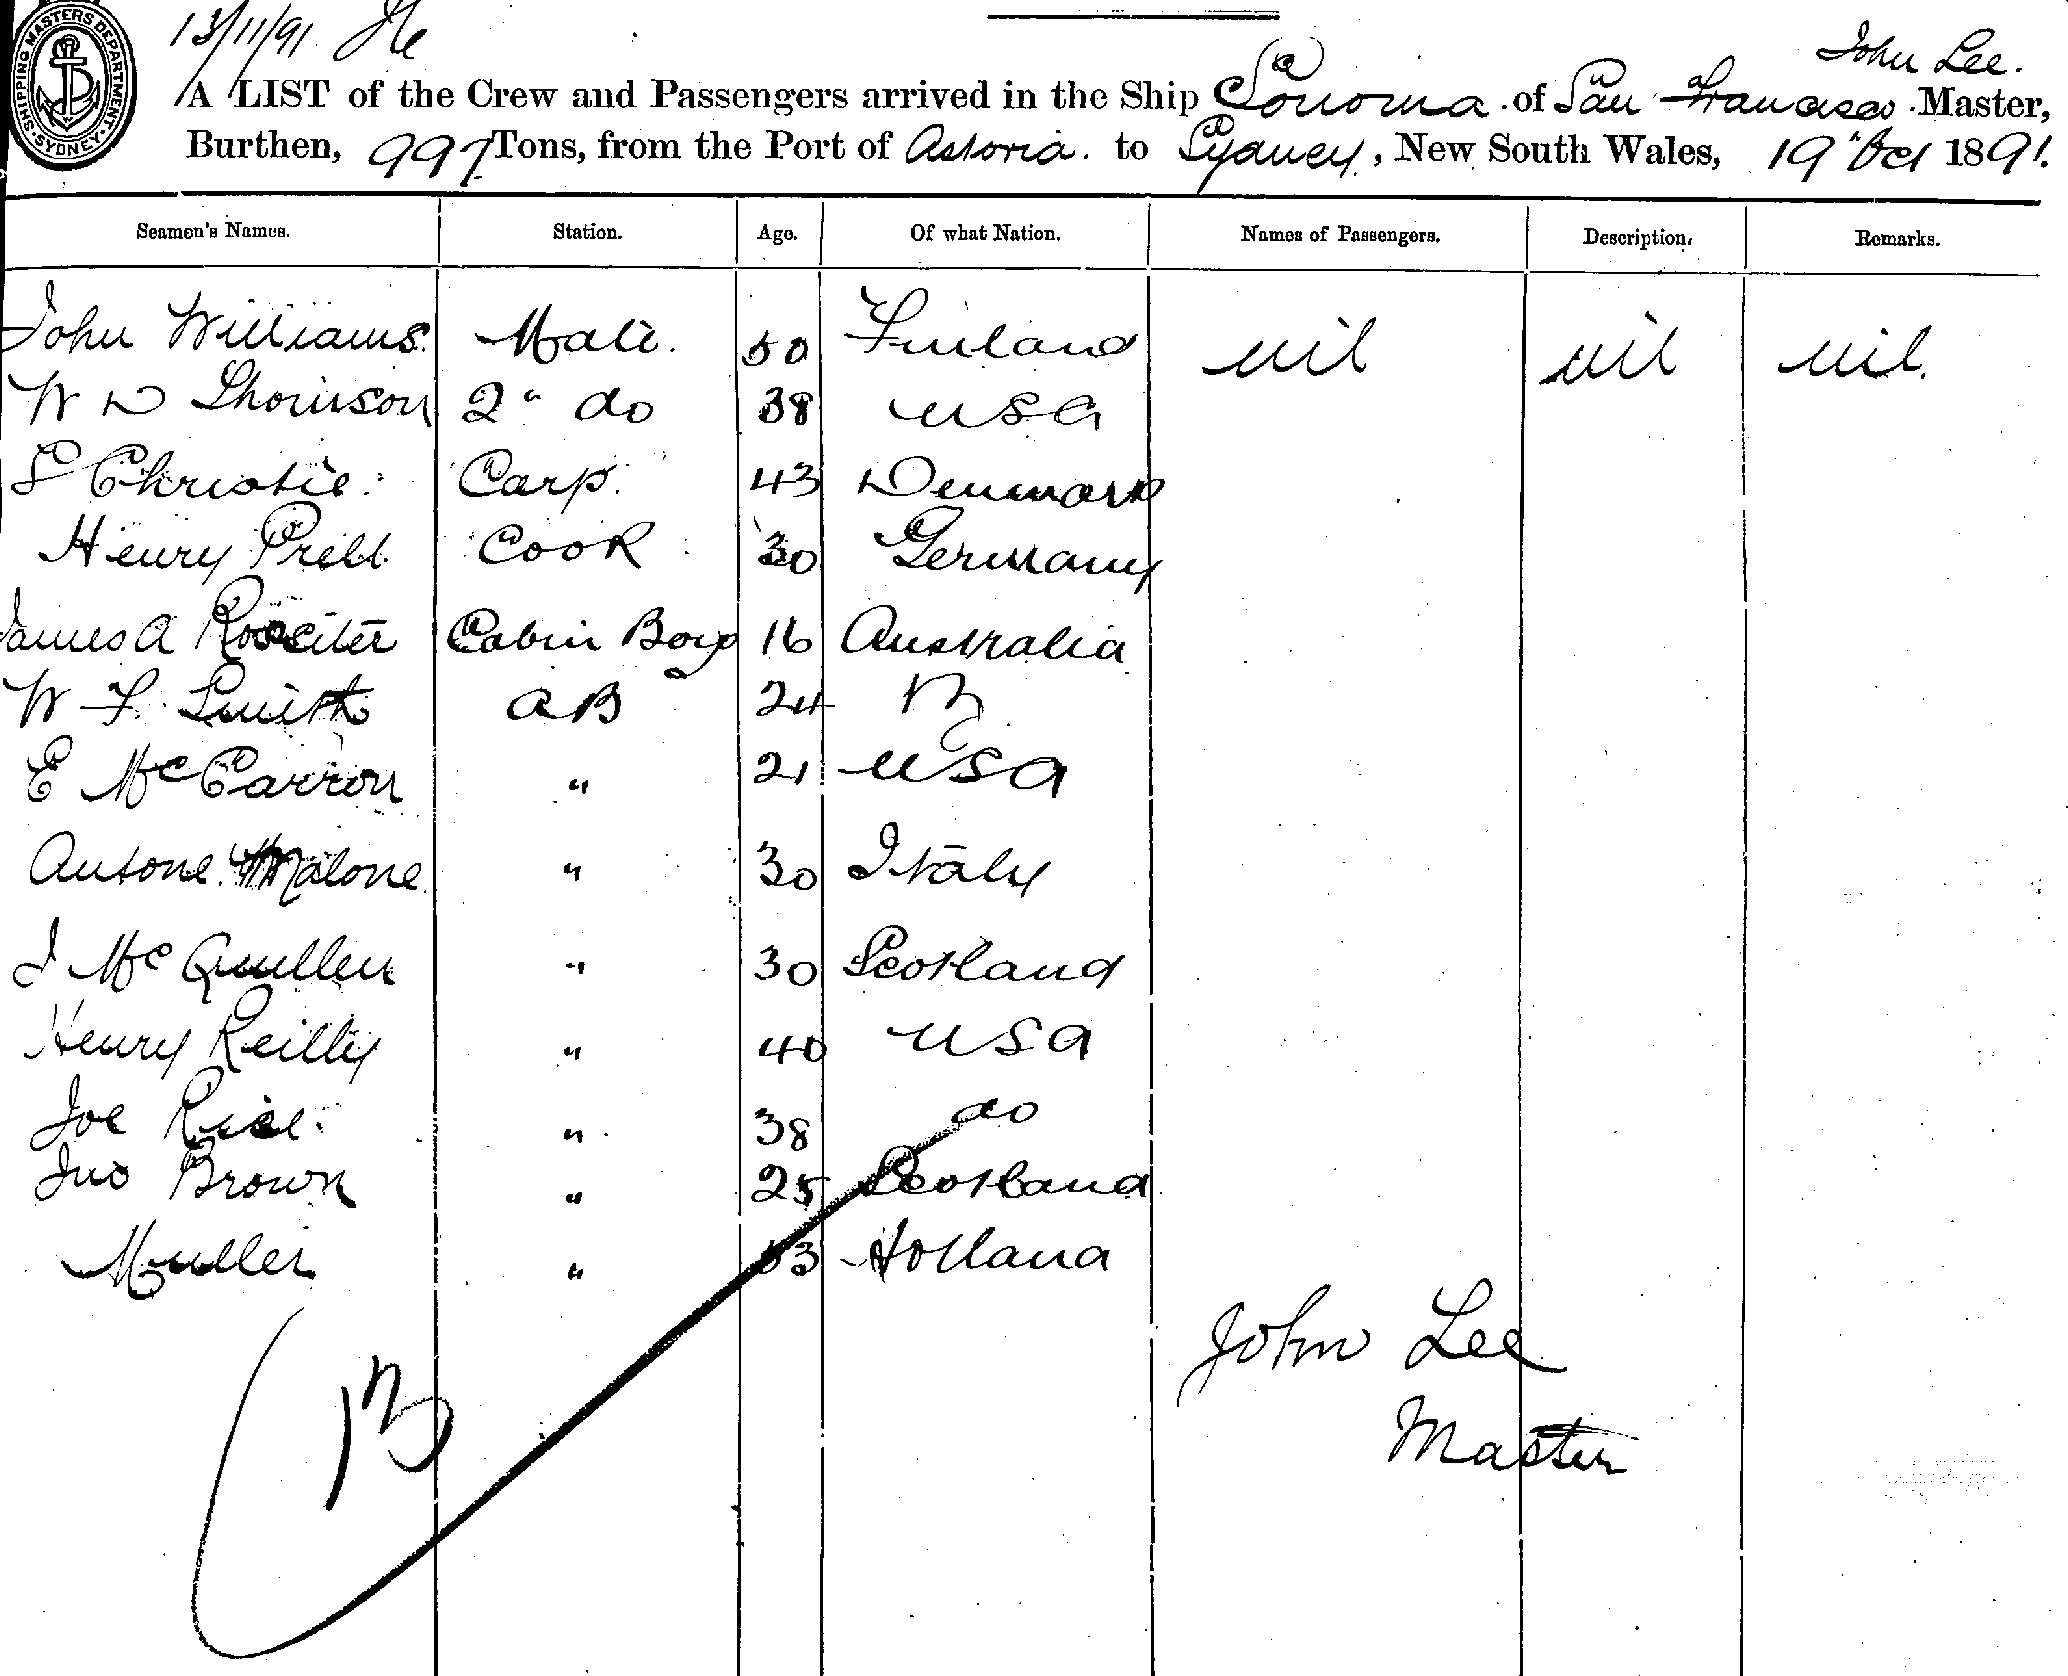 SHIPPING MASTERS DEPARTMENT. SYDNEY
13/11/91
John Lee.
A LIST of the Crew and Passengers arrived in the Ship Sonoma of San Francisco Master,
Burthen, 997 Tons, from the Port of Astoria. to Sydney, New South Wales, 19 Oct 1891.
Seamen's Names. Station. Age. Of what Nation. Names of Passengers. Description. Remarks.
John Williams. Mate. 50 Finland nil nil nil.
W D Thomson 2" do 38 USA
Christie Carp. 43 Denmark
Henry Cook 30 Germany
James A Rossiter Cabin Boy 16 Australia
W F Smith AB 24
E McCarron " 21 USA
Antone Malone " 30 Italy
J McQuillen " 30 Scotland
Henry Reilly " 40 USA
Joe Rice. " 38 do
Jno Brown " 25 Scotland
Muller " 53 Holland
13
John Lee
Master